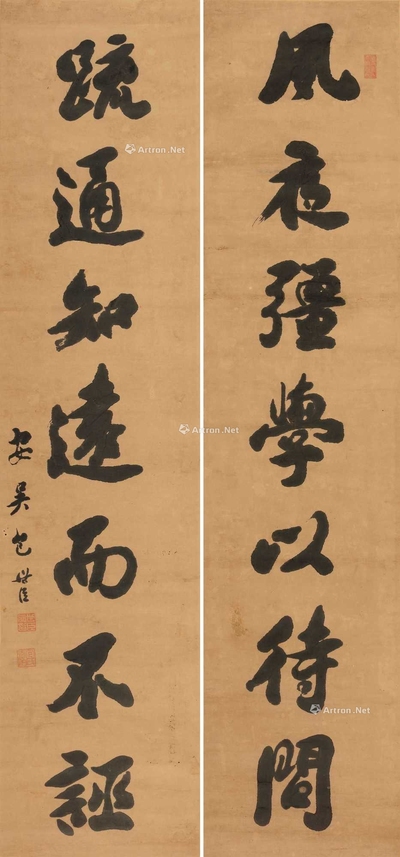 夙夜彊學以待問
疏通知遠而不誣
安吳包世臣
Artron.Net
Artron.Net
Artron.Net